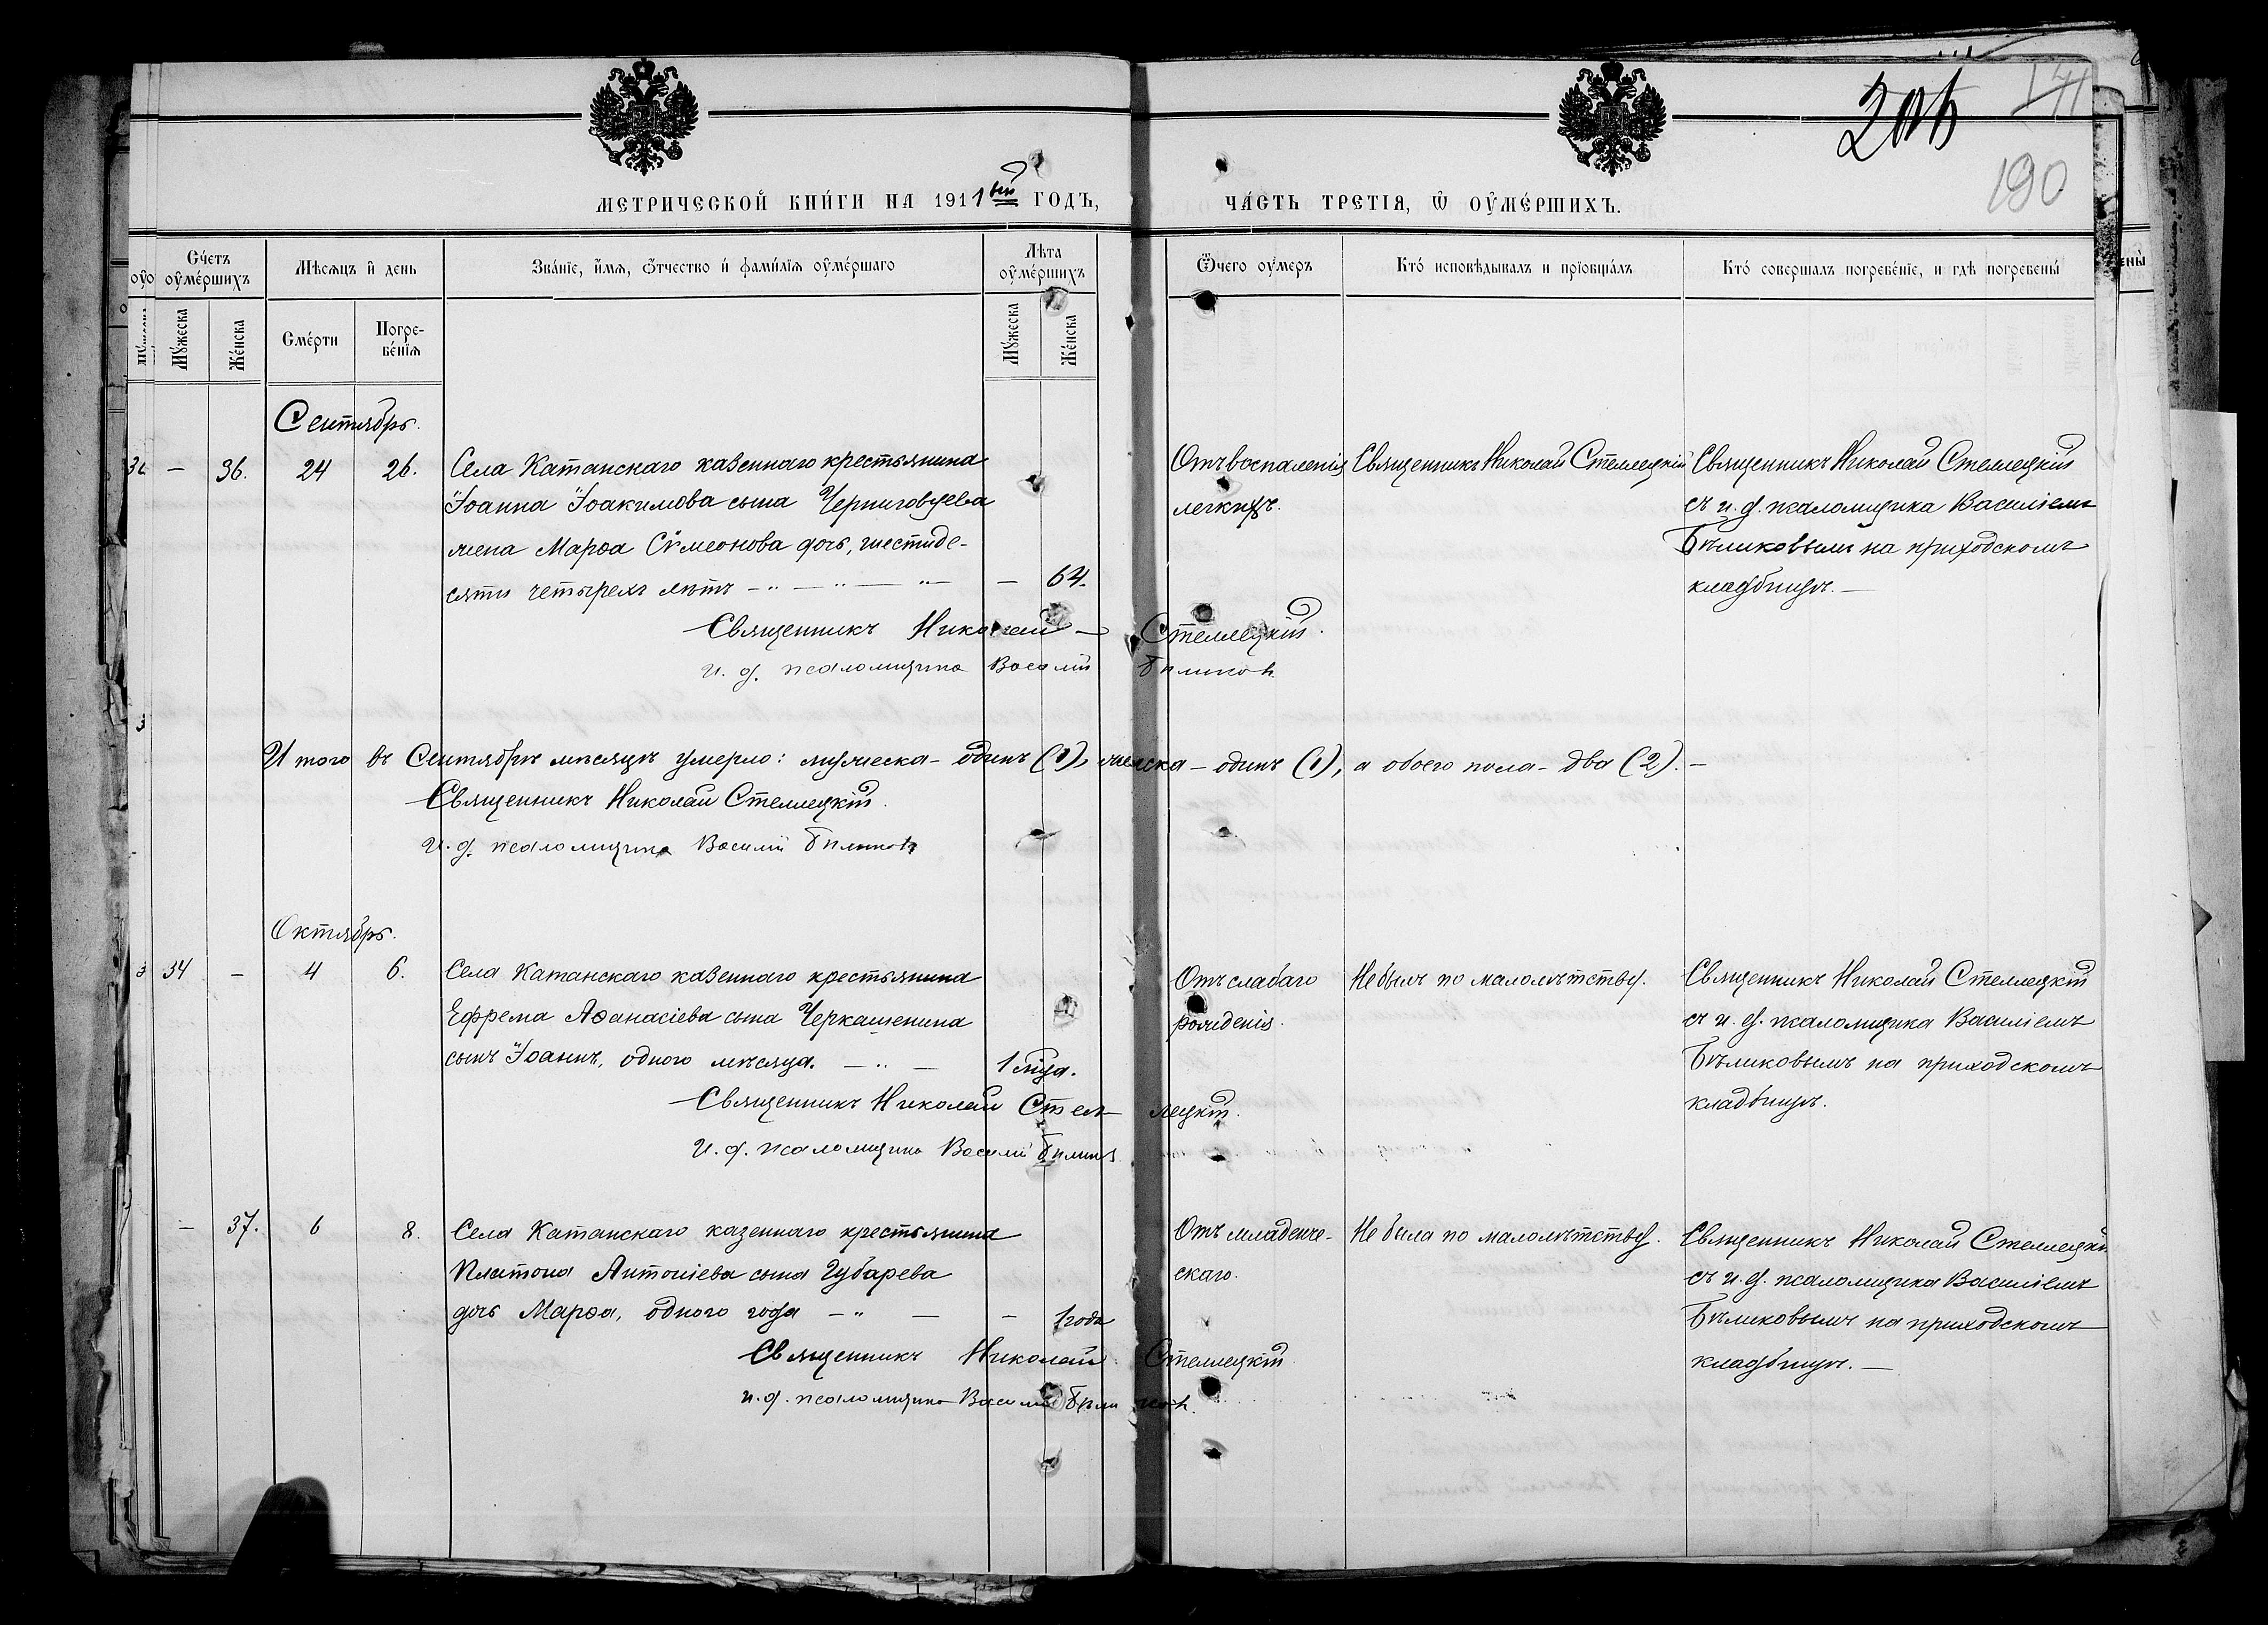 205
171
190
МЕТРИЧЕСКОЙ КНИГИ НА 1911ый ГОДЪ, ЧАСТЬ ТРЕТІЯ, Ѿ ОУМЕРШИХЪ.
Счетъ оумершихъ
Мѣсяцъ и день
Званіе, имя, отчество и фамилія оумершаго
Лѣта оумершихъ
Ѿчего оумеръ
Кто исповѣдывалъ и пріобщалъ
Кто совершалъ погребеніе, и гдѣ погребены
Мужеска
Женска
Смерти
Погребенія
Мужеска
Женска
Сентябрь.
— 36. 24 26.
Села Катанскаго казеннаго крестьянина
Іоанна Іоакимова сына Черниговцева
жена Марѳа Сѵмеонова дочь, шестиде-
сяти четырехъ лѣтъ — 64.
Отъ воспаленія
легкихъ.
Священникъ Николай Стеллецкій
Священникъ Николай Стеллецкій
съ и. д. псаломщика Василіемъ
Бѣликовымъ на приходскомъ
кладбищѣ.—
Священникъ Николай Стеллецкій.
и. д. псаломщика Василій Бѣликовъ
Итого въ Сентябрѣ мѣсяцѣ умерло: мужеска - одинъ (1), женска - одинъ (1), а обоего пола - два (2). —
Священникъ Николай Стеллецкій.
и. д. псаломщика Василій Бѣликовъ
Октябрь.
34 — 4 6.
Села Катанскаго казеннаго крестьянина
Ефрема Аѳанасіева сына Черкашенина
сынъ Іоаннъ, одного мѣсяца. — 1 мца.
Отъ слабаго
рожденія.
Не былъ по малолѣтству.
Священникъ Николай Стеллецкій
съ и. д. псаломщика Василіемъ
Бѣликовымъ на приходскомъ
кладбищѣ.
Священникъ Николай Стеллецкій.
и. д. псаломщика Василій Бѣликовъ
— 37. 6 8.
Села Катанскаго казеннаго крестьянина
Платона Антоніева сына Губарева
дочь Марѳа, одного года — 1 года
Отъ младенче-
скаго.
Не была по малолѣтству.
Священникъ Николай Стеллецкій
съ и. д. псаломщика Василіемъ
Бѣликовымъ на приходскомъ
кладбищѣ.—
Священникъ Николай Стеллецкій
и. д. псаломщика Василій Бѣликовъ.